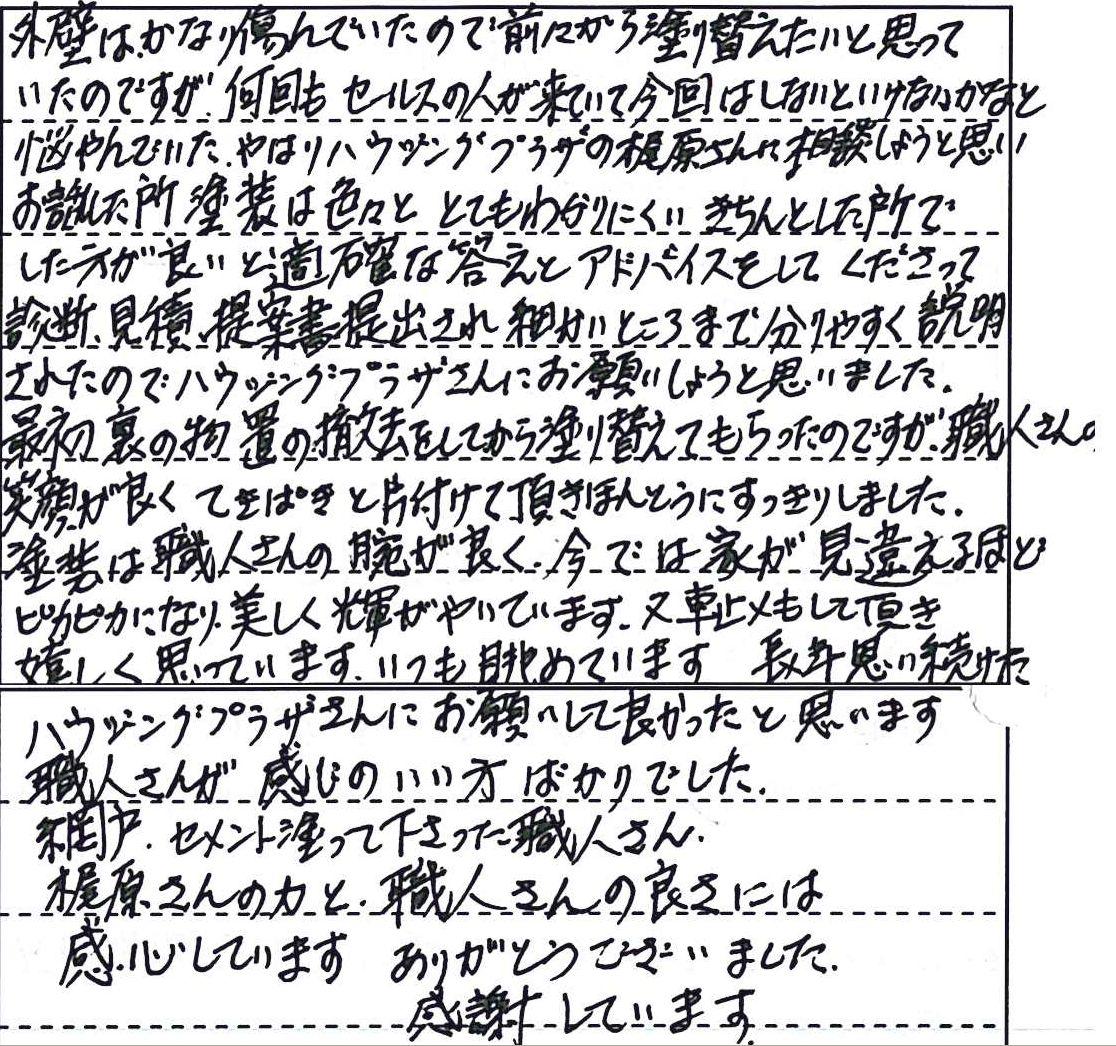 外壁は、かなり傷んでいたので前々から塗り替えたいと思って
いたのですが、何回もセールスの人が来ていて今回はしないといけないかなと
悩やんでいた、やはりハウジングプラザの梶原さんに相談しようと思い
お話した所塗装は色々ととてもわかりにくいきちんとした所で
した方が良いと適確な答えとアドバイスをしてくださって
診断、見積、提案書提出され細かいところまで分りやすく説明
されたのでハウジングプラザさんにお願いしようと思いました。
最初裏の物置の撤去をしてから塗り替えてもらったのですが、職人さんの
笑顔が良くてきぱきと片付けて頂きほんとうにすっきりしました。
塗装は職人さんの腕が良く、今では家が見違えるほど
ピカピカになり、美しく輝がやいています。又車止メもして頂き
嬉しく思っています。いつも眺めています 長年思い続けた
ハウジングプラザさんにお願いして良かったと思います
職人さんが感じのいい方ばかりでした。
網戸、セメント塗って下さった職人さん、
梶原さんの力と、職人さんの良さには
感心しています ありがとうございました。
感謝しています。